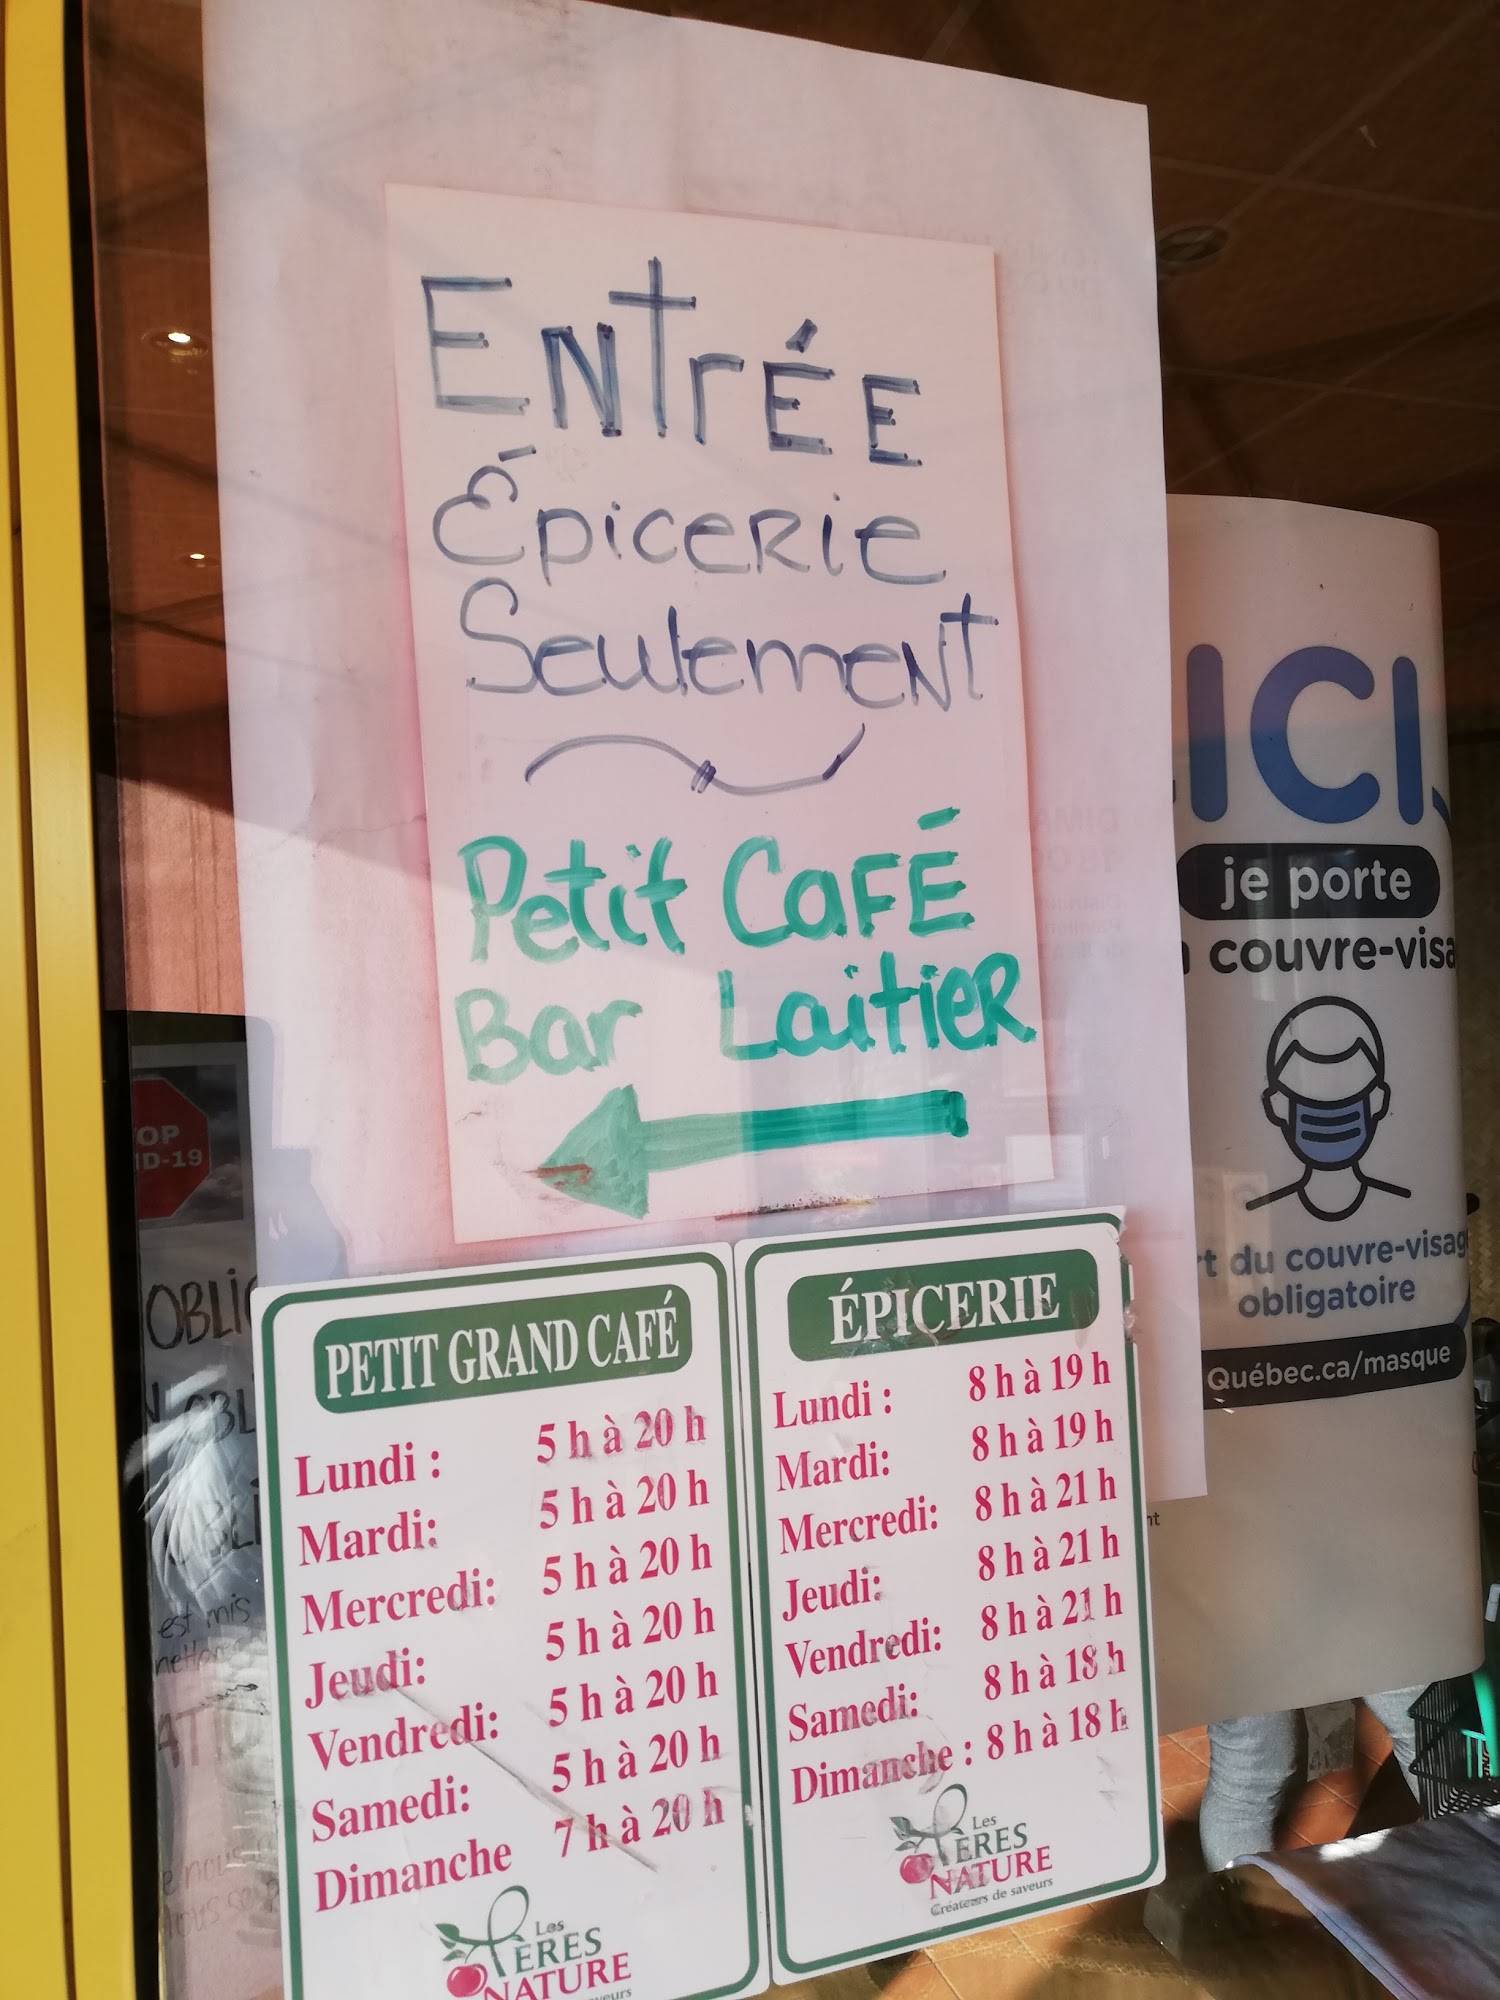 ENTRÉE
Épicerie
Seulement
Petit Café
Bar Laitier
ICI
je porte
couvre-visa
rt du couvre-visag
obligatoire
Québec.ca/masque
OP
ID-19
OBLIG
est mis
PETIT GRAND CAFÉ
Lundi : 5 h à 20 h
Mardi: 5 h à 20 h
Mercredi: 5 h à 20 h
Jeudi: 5 h à 20 h
Vendredi: 5 h à 20 h
Samedi: 5 h à 20 h
Dimanche 7 h à 20 h
Les
PÈRES
NATURE
ÉPICERIE
Lundi : 8 h à 19 h
Mardi: 8 h à 19 h
Mercredi: 8 h à 21 h
Jeudi: 8 h à 21 h
Vendredi: 8 h à 21 h
Samedi: 8 h à 18 h
Dimanche : 8 h à 18 h
Les
PÈRES
NATURE
Créateurs de saveurs